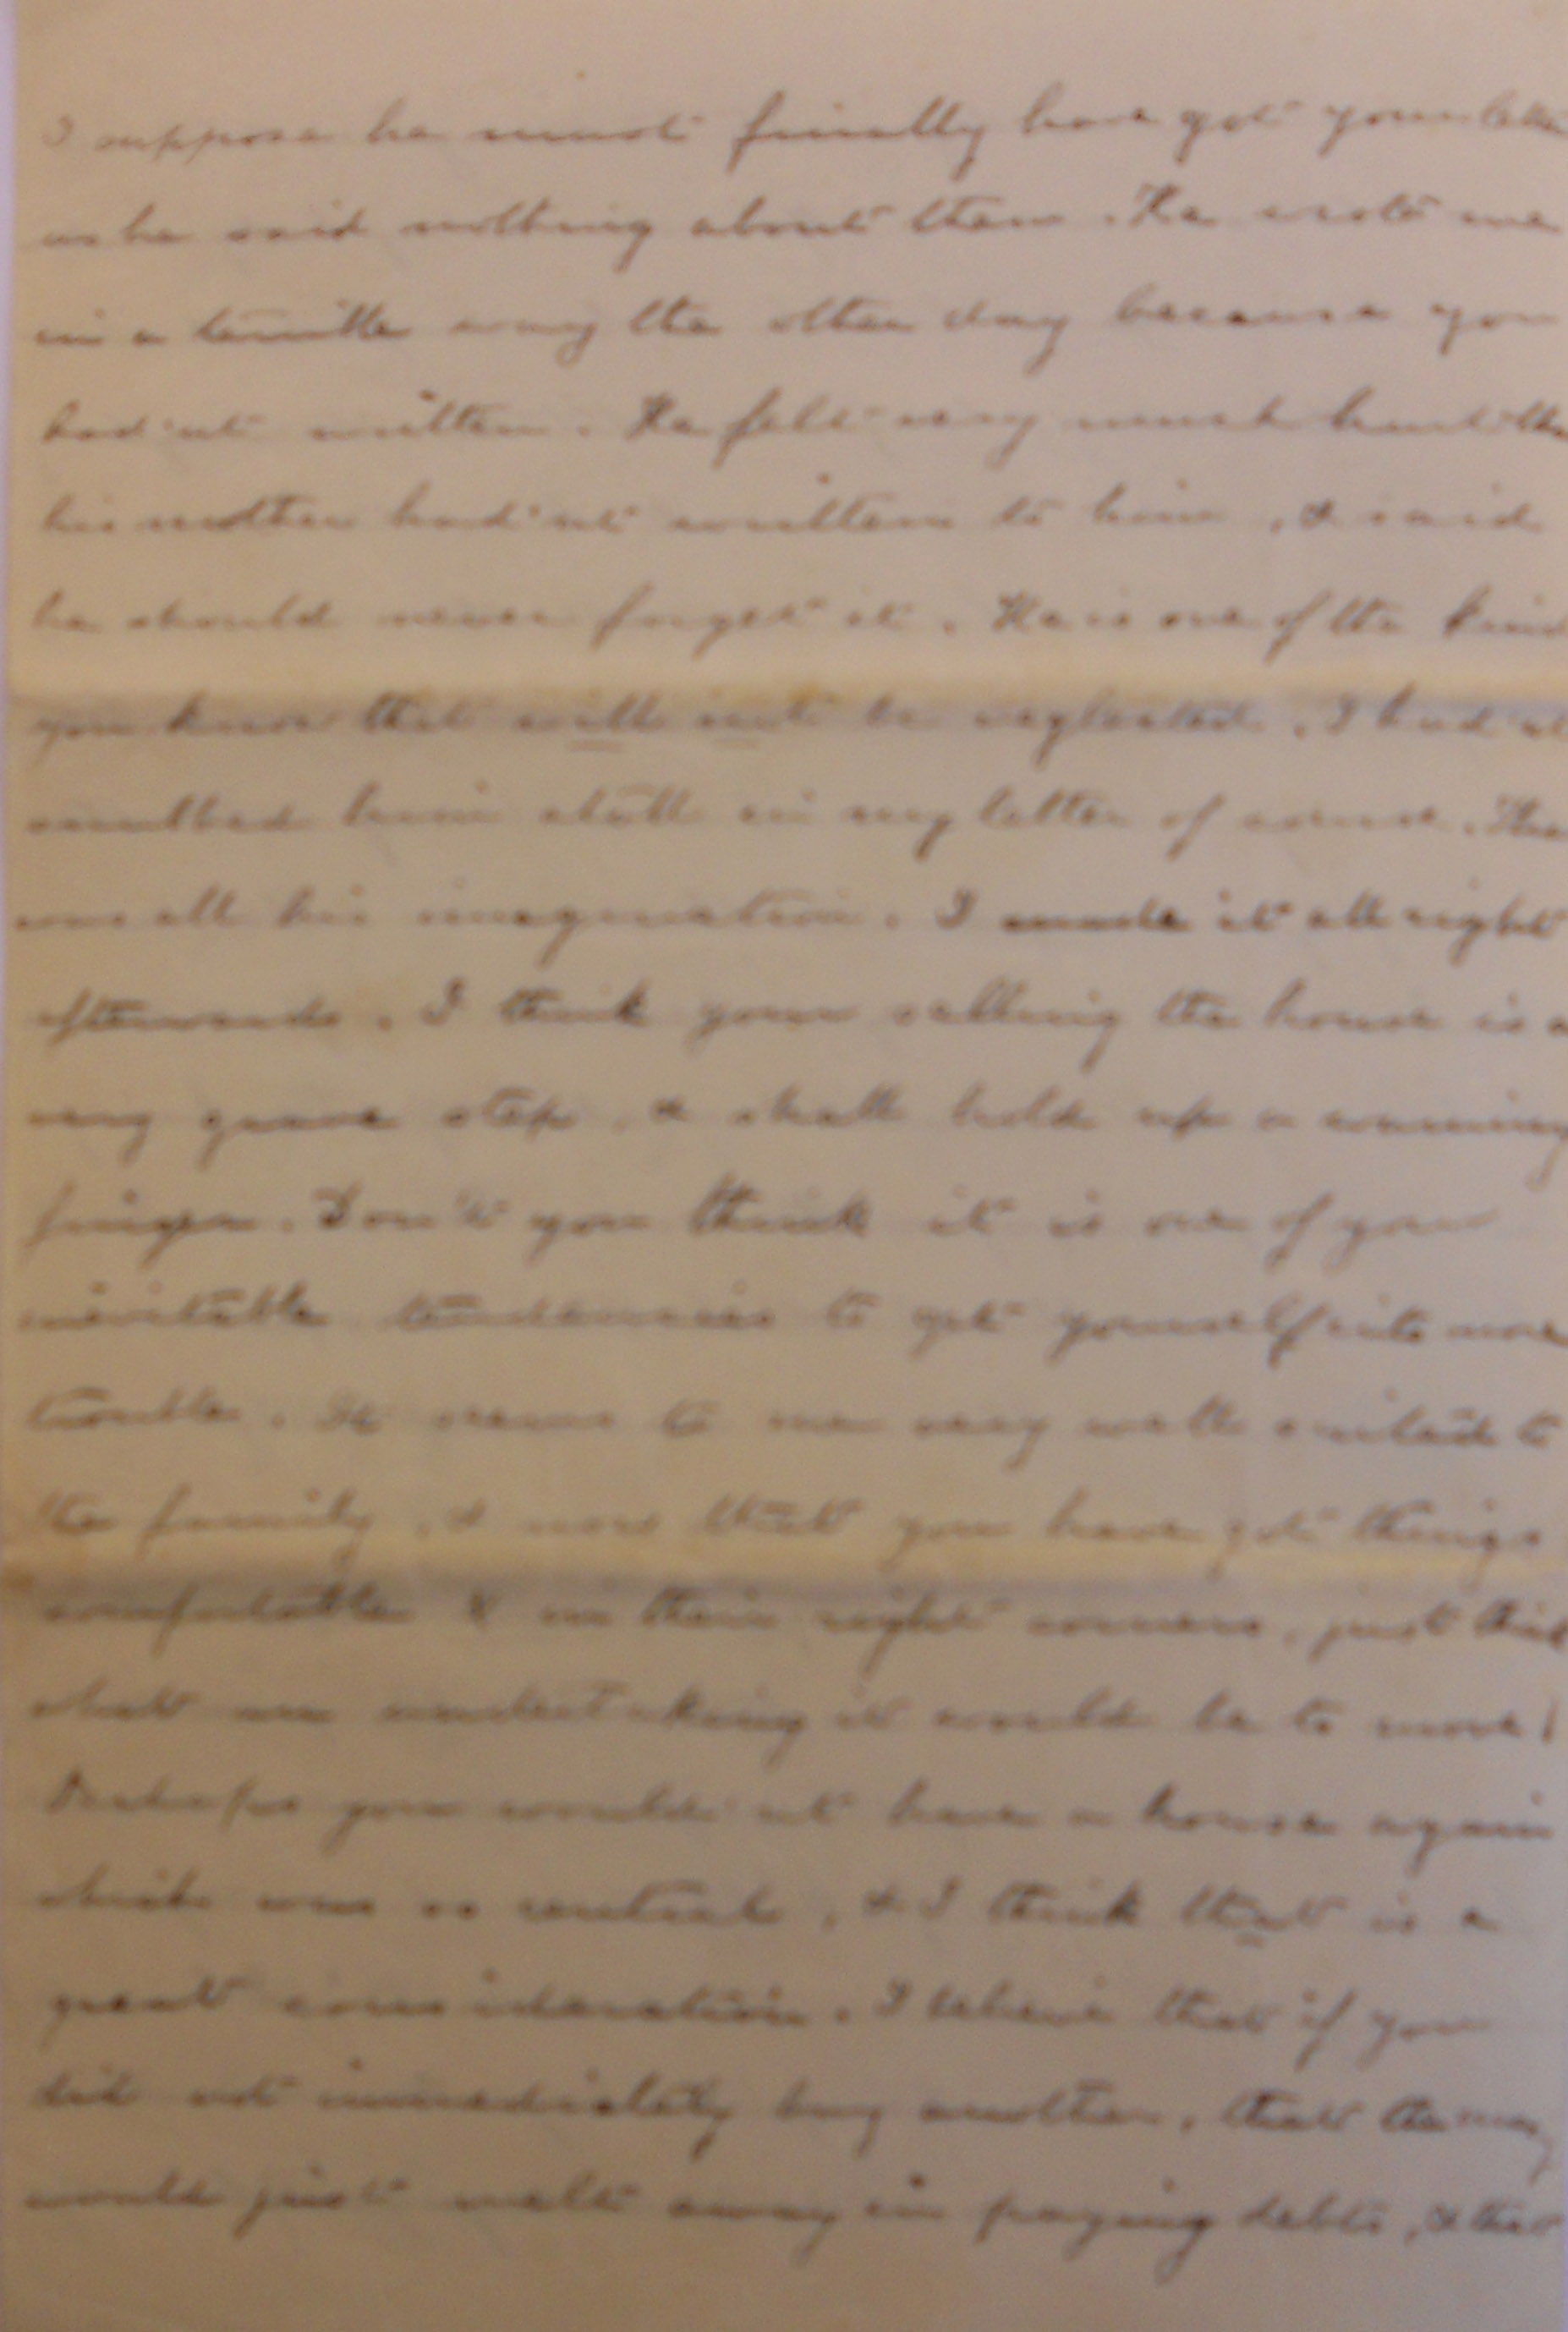 I suppose he must finally have got your letter
as he said nothing about them. He wrote me
in a terrible way the other day because you
had'nt written. He felt very much hurt tha
his mother had'nt written to him, & said
he should never forget it. He is one of the kind
you know that will not be neglected. I had'nt
insulted him at all in my letter of course. That
was all his imagination. I made it all right
afterwards. I think your selling the house is a
very grave step, & shall hold up a warning
finger. Don't you think it is one of your
inevitable tendencies to get yourself into more
trouble. It seems to me very well suited to
the family, & now that you have got things
comfortable & in their right corners, just think
what an undertaking it would be to move!
Perhaps you would'nt have a house again
which was so central, & I think that is a
great consideration. I believe that if you
did not immediately buy another, that the money
would just melt away in paying debts, & that